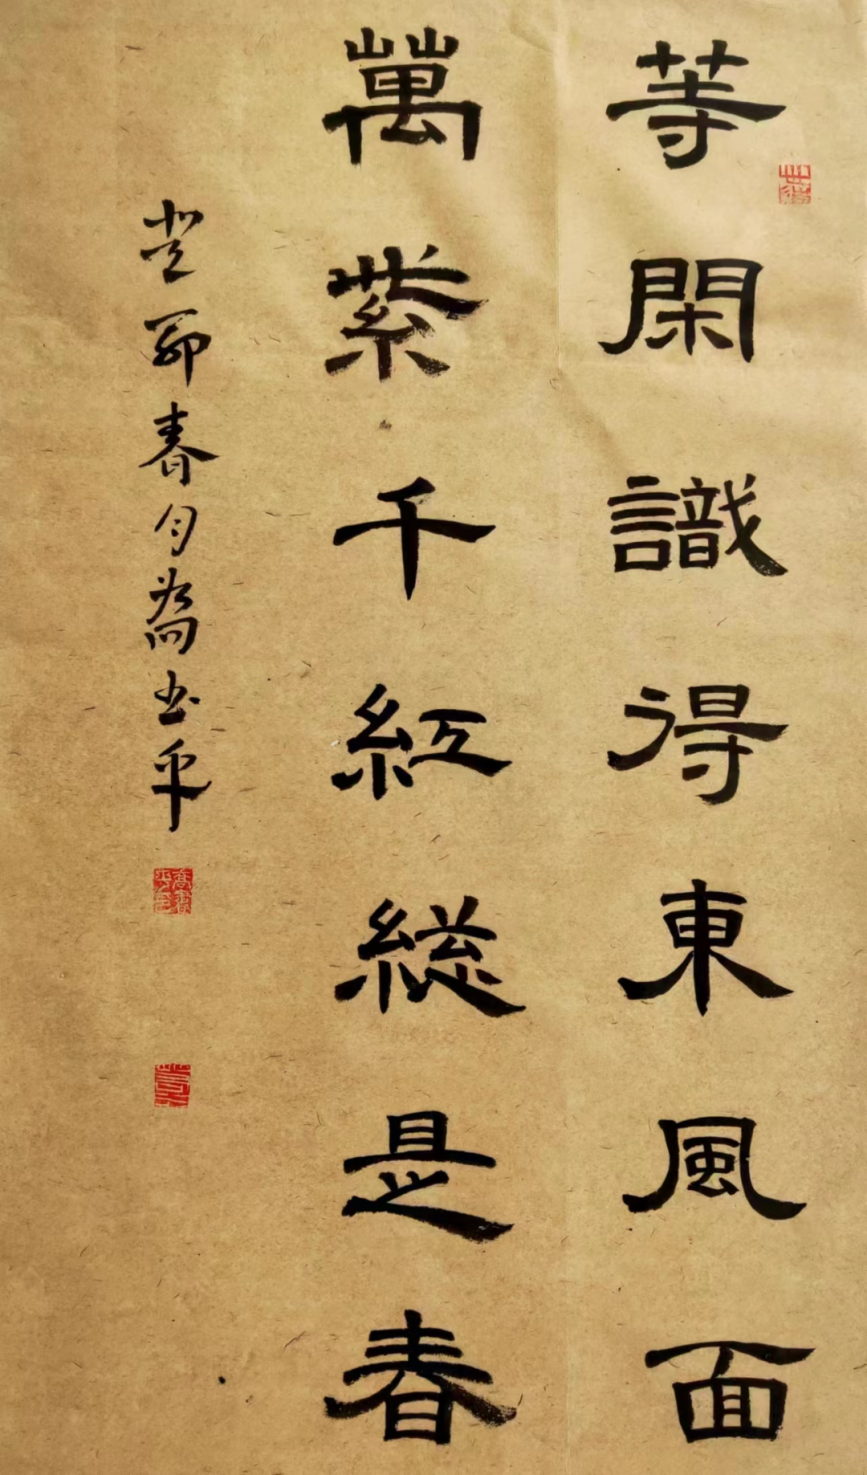 等閑識得東風面
萬紫千紅総是春
癸卯春月喬书平